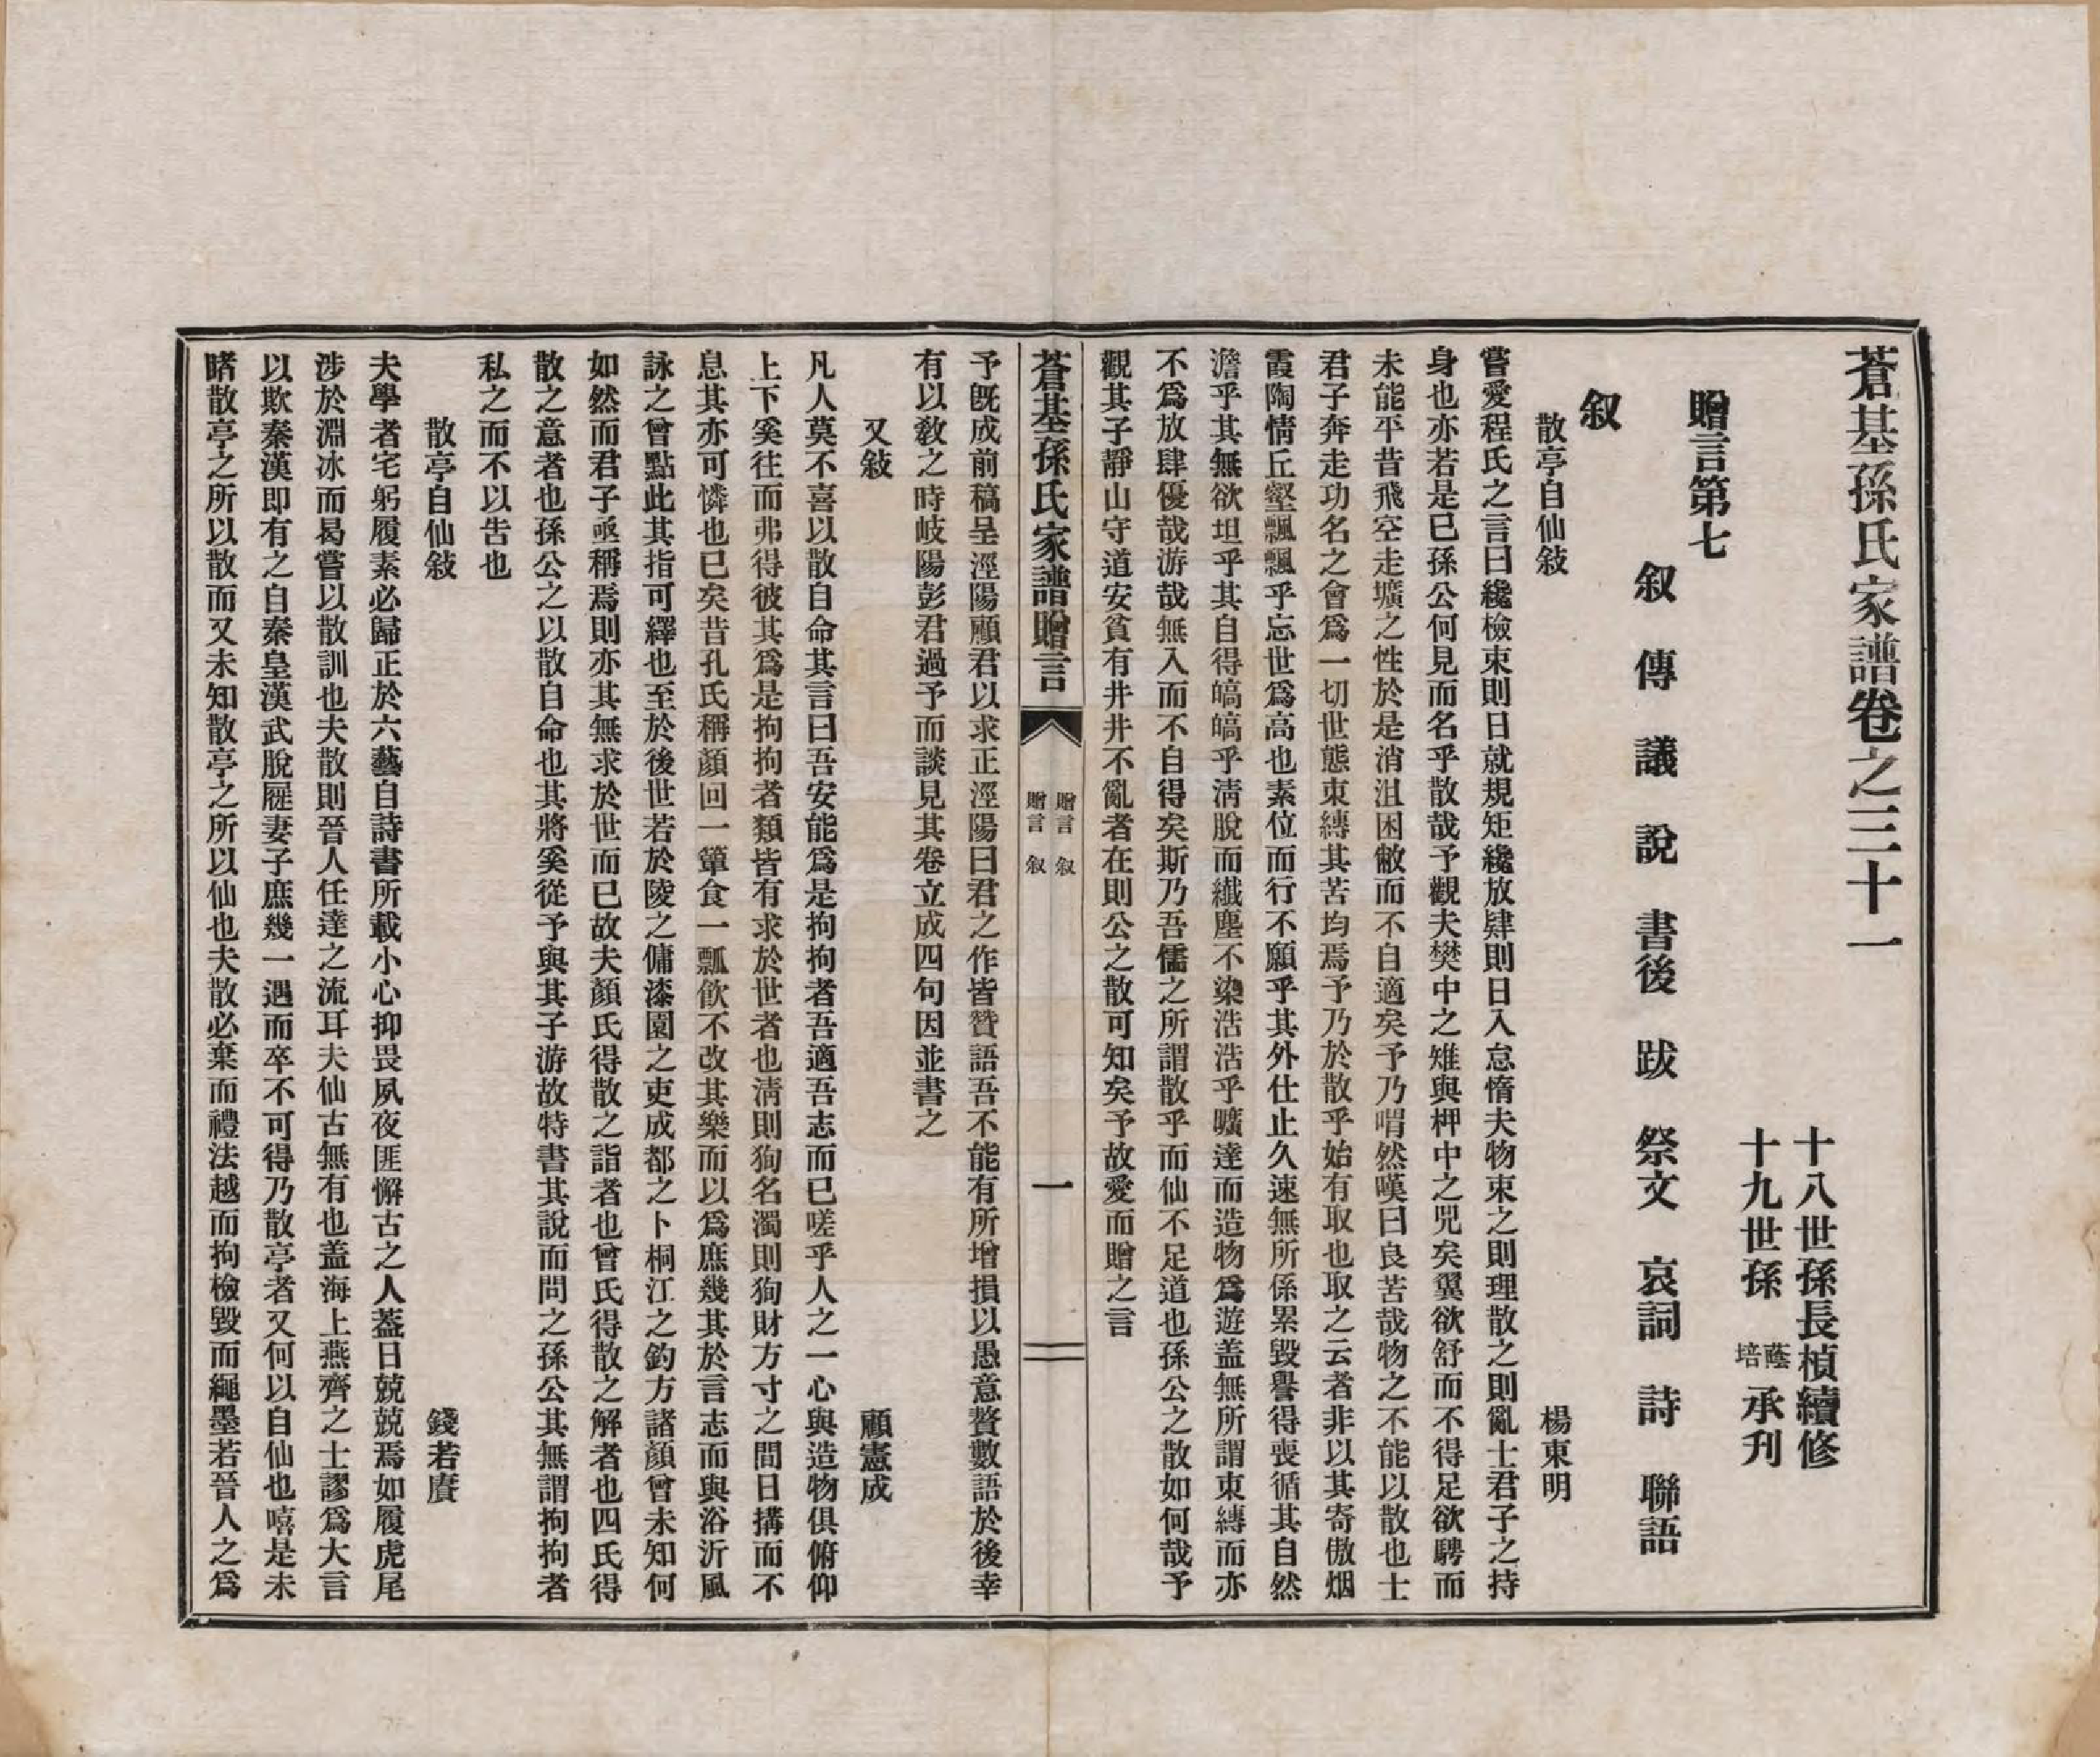 蒼基孫氏家譜卷之三十一
十八世孫長楨續修
十九世孫 蔭培 承刊
贈言第七
叙 傳 議 說 書後 跋 祭文 哀詞 詩 聯語
叙
散亭自仙敍 楊東明
嘗愛程氏之言曰纔檢束則日就規矩纔放肆則日入怠惰夫物束之則理散之則亂士君子之持
身也亦若是已孫公何見而名乎散哉予觀夫樊中之雉與柙中之兕矣翼欲舒而不得足欲騁而
未能平昔飛空走壙之性於是消沮困敝而不自適矣予乃喟然嘆曰良苦哉物之不能以散也士
君子奔走功名之會爲一切世態束縛其苦均焉予乃於散乎始有取也取之云者非以其寄傲烟
霞陶情丘壑飄飄乎忘世爲高也素位而行不願乎其外仕止久速無所係累毀譽得喪循其自然
澹乎其無欲坦乎其自得皜皜乎淸脫而纖塵不染浩浩乎曠達而造物爲遊盖無所謂束縛而亦
不爲放肆優哉游哉無入而不自得矣斯乃吾儒之所謂散乎而仙不足道也孫公之散如何哉予
觀其子靜山守道安貧有井井不亂者在則公之散可知矣予故愛而贈之言
蒼基孫氏家譜贈言
贈言 叙
贈言 叙
一
予既成前稿呈涇陽顧君以求正涇陽曰君之作皆贊語吾不能有所增損以愚意贅數語於後幸
有以敎之時岐陽彭君過予而談見其卷立成四句因並書之
又敍 顧憲成
凡人莫不喜以散自命其言曰吾安能爲是拘拘者吾適吾志而已嗟乎人之一心與造物俱俯仰
上下奚往而弗得彼其爲是拘拘者類皆有求於世者也淸則狥名濁則狥財方寸之間日搆而不
息其亦可憐也已矣昔孔氏稱顏回一簞食一瓢飮不改其樂而以爲庶幾其於言志而與浴沂風
詠之曾點此其指可繹也至於後世若於陵之傭漆園之吏成都之卜桐江之釣方諸顏曾未知何
如然而君子亟稱焉則亦其無求於世而已故夫顏氏得散之詣者也曾氏得散之解者也四氏得
散之意者也孫公之以散自命也其將奚從予與其子游故特書其說而問之孫公其無謂拘拘者
私之而不以告也
散亭自仙敍 錢若賡
夫學者宅躬履素必歸正於六藝自詩書所載小心抑畏夙夜匪懈古之人蓋日兢兢焉如履虎尾
涉於淵冰而曷嘗以散訓也夫散則晉人任達之流耳夫仙古無有也盖海上燕齊之士謬爲大言
以欺秦漢即有之自秦皇漢武脫屣妻子庶幾一遇而卒不可得乃散亭者又何以自仙也嘻是未
睹散亭之所以散而又未知散亭之所以仙也夫散必棄而禮法越而拘檢毀而繩墨若晉人之爲